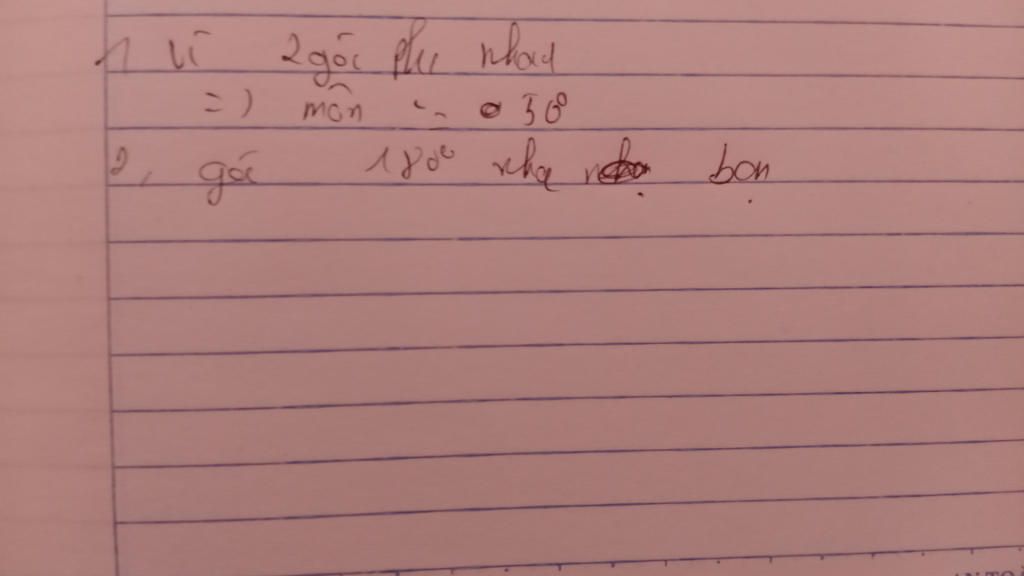 1 Vì 2 góc phụ nhau
=> môn 50⁰
2, góc 180⁰ nha bạn